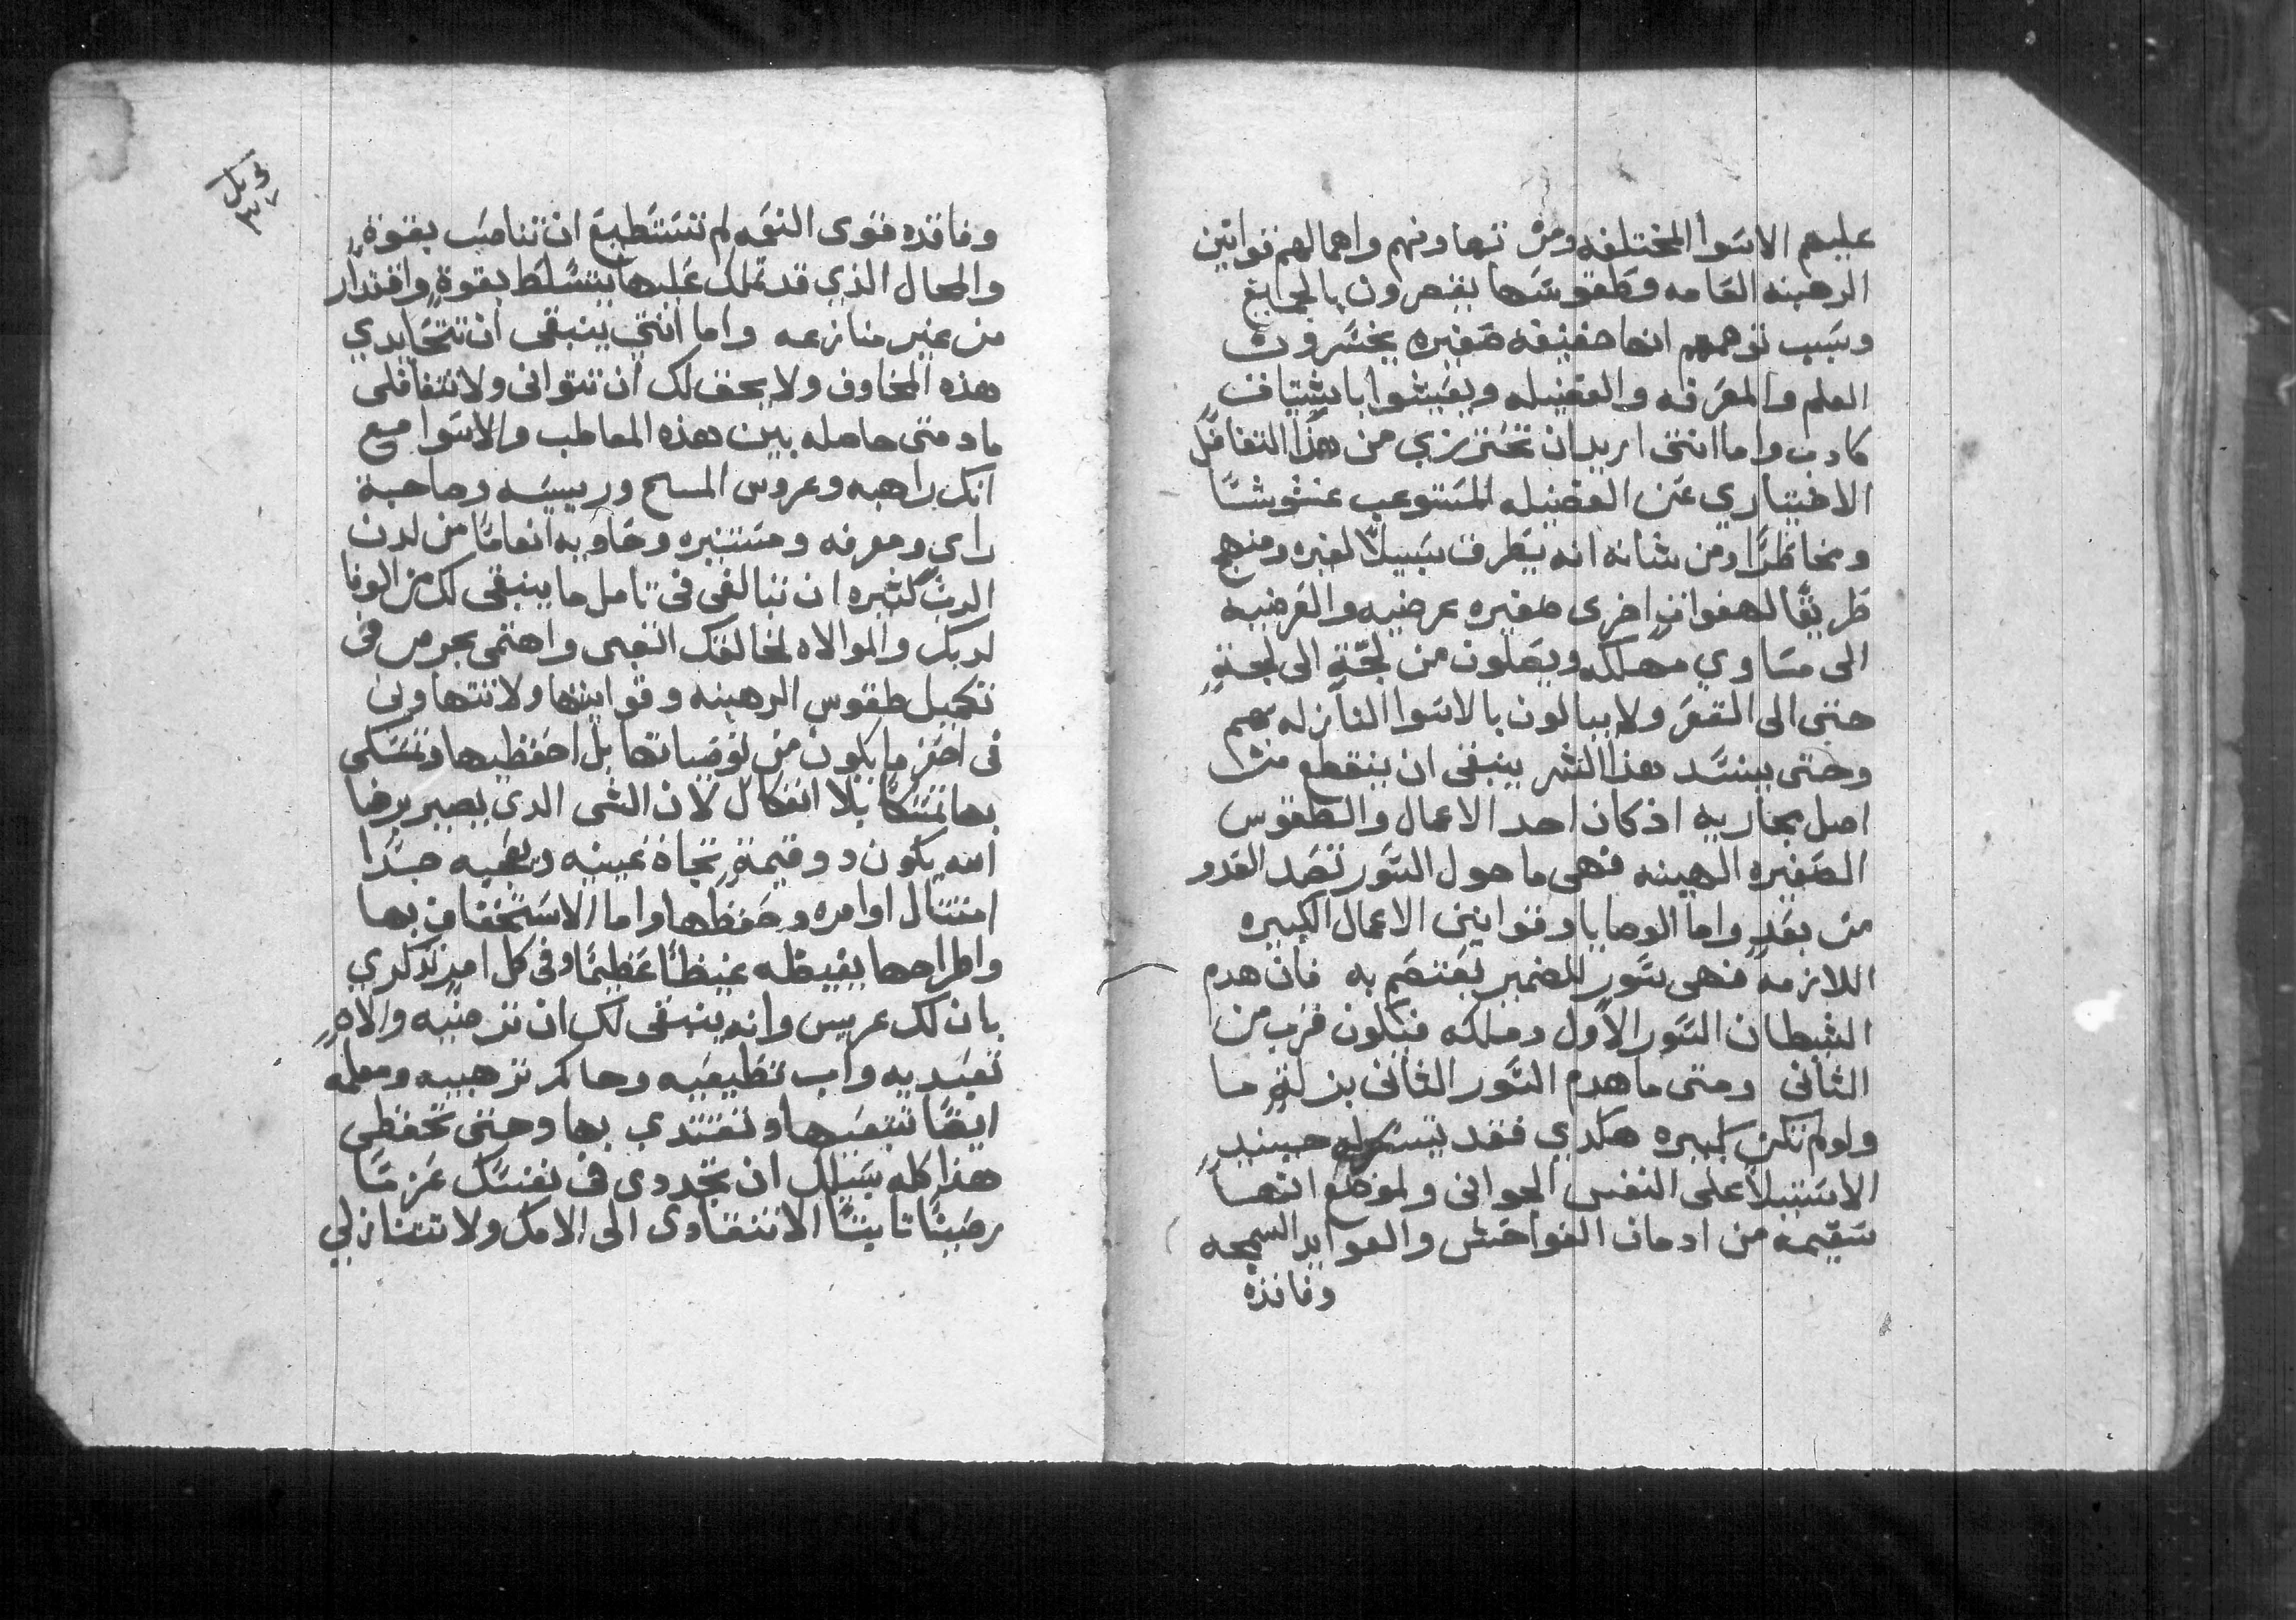 عليهم الاسوا المختلفه ومن تهاونهم واهمالهم قوانين
الرهبنه العامه وطقوسها يقصرون بالجمايع
وسبب توهمهم انها خفيفه صغيره يخسرون
العلم والمعرفه والفضيله ويعيشوا باشتياق
كادب واما انتي اريد ان تحترزي من هذا التغافل
الاختياري عن الفضيله المستوعب غشوشًا
ومخاطرًا ومن شانه انه يطرق سبيلًا لغيره ومنهج
طريقًا لهفوات اخرى صغيره عرضيه والعرضيه
الى مساوي مهلكه ويصلون من لجةٍ الى لجةٍ
حتى الى القعر ولا يبالون بالاسوا النازله بهم
وحتى ينسد هذا الشر ينبغي ان ينقطع من
اصل مجاريه اذ كان احد الاعمال والطقوس
الصغيره الهينه فهي ما حول السور تصد العدو
من بعدٍ واما الوصايا وقوانين الاعمال الكبيره
اللازمه فهي سور للضمير يعتصم به فان هدم
الشيطان السور الاول وملكه فيكون قرب من
الثاني ومتى ما هدم السور الثاني بزلةٍ ما
ولو لم تكن كبيره هكدي فقد يتسهل حينيدٍ
الاستيلا على النفس الجواني ولموضع انها
سقيمه من ادمان الفواحش والعوايد السمجه
وفاقده
وفاقده قوى النعمه لم تستطيع ان تناصب بقوةٍ
والمحال الذي قد تملك عليها يتسلط بقوةٍ واقتدار
من غير منازعه واما انتي ينبغي ان تتحايدي
هذه المخاوف ولا يحق لك ان تتواني ولا تتغافلي
مادمتي حاصله بين هذه المعاطب والاسوا مع
انك راهبه وعروس المسيح ورييسه وصاحبة
راي ومعرفه ومستنيره وحاويه انعامًا من لدن
الرب كثيره ان تبالغي في تامل ما ينبغي لك من الوفا
لربك والموالاه لخالقك النعمى واهتمي بحرص في
تكميل طقوس الرهبنه وقوانينها ولا تتهاوني
في احقر ما يكون من توصياتها بل احفظيها وتمسكي
بها تمسكًا بلا انفكاك لان الشي الدي يصير برضا
الله يكون دو قيمةٍ تجاه عينيه ويرضيه جدًا
امتثال اوامره وحفظها واما الاستخفاف بها
واطراحها يغيظه غيظًا عظيمًا وفي كل امرٍ تدكري
بان لك عريس وانه ينبغي لك ان ترضيه والاهٍ
تعبديه واب تطيعيه وحاكم ترهبيه ومعلمه
ايضًا تتبعيها وتقتدي بها وحتى تحفظي
هذا كله سبيلك ان تجددي في نفسك عزمًا
رصينًا ثابتًا الا تنقادي الى الامك ولا تتنازلي